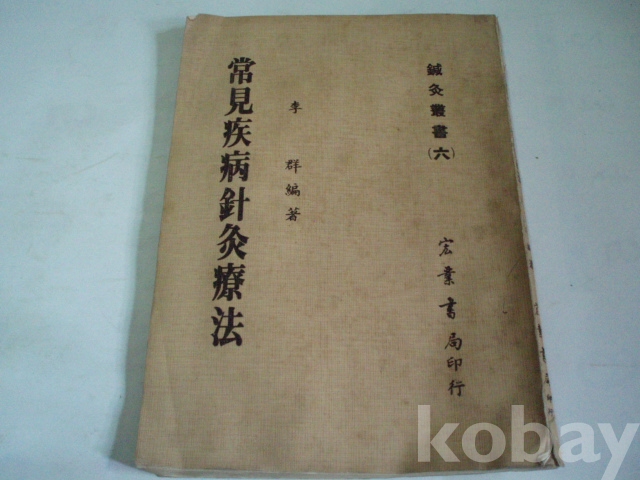 鍼灸叢書(六)
宏業書局印行
李群編著
常見疾病針灸療法
kobay